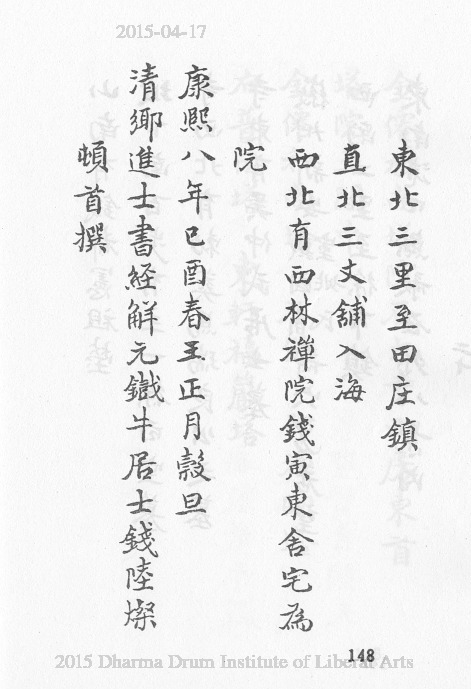 2015-04-17
東北三里至田庄鎮
直北三丈舖入海
西北有西林禪院錢寅東舍宅為
院
康熙八年己酉春王正月穀旦
清鄉進士書経解元鐵牛居士錢陸燦
頓首撰
148
2015 Dharma Drum Institute of Liberal Arts